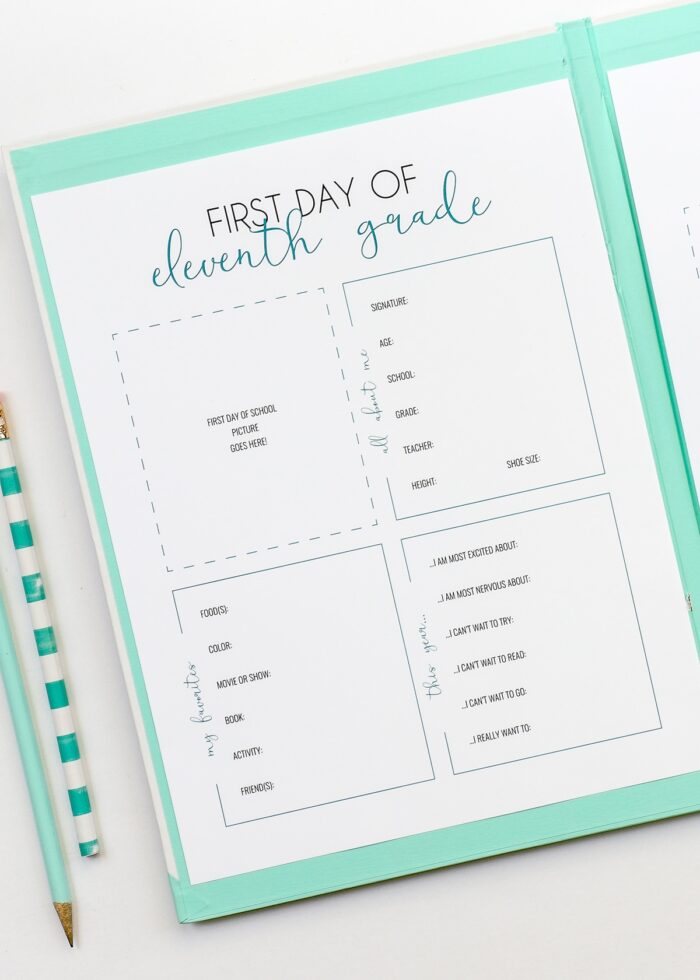 FIRST DAY OF
eleventh grade
FIRST DAY OF SCHOOL
PICTURE
GOES HERE!
all about me
SIGNATURE:
AGE:
SCHOOL:
GRADE:
TEACHER:
HEIGHT: SHOE SIZE:
my favorites
FOOD(S):
COLOR:
MOVIE OR SHOW:
BOOK:
ACTIVITY:
FRIEND(S):
this year...
...I AM MOST EXCITED ABOUT:
...I AM MOST NERVOUS ABOUT:
...I CAN'T WAIT TO TRY:
...I CAN'T WAIT TO READ:
...I CAN'T WAIT TO GO:
...I REALLY WANT TO: